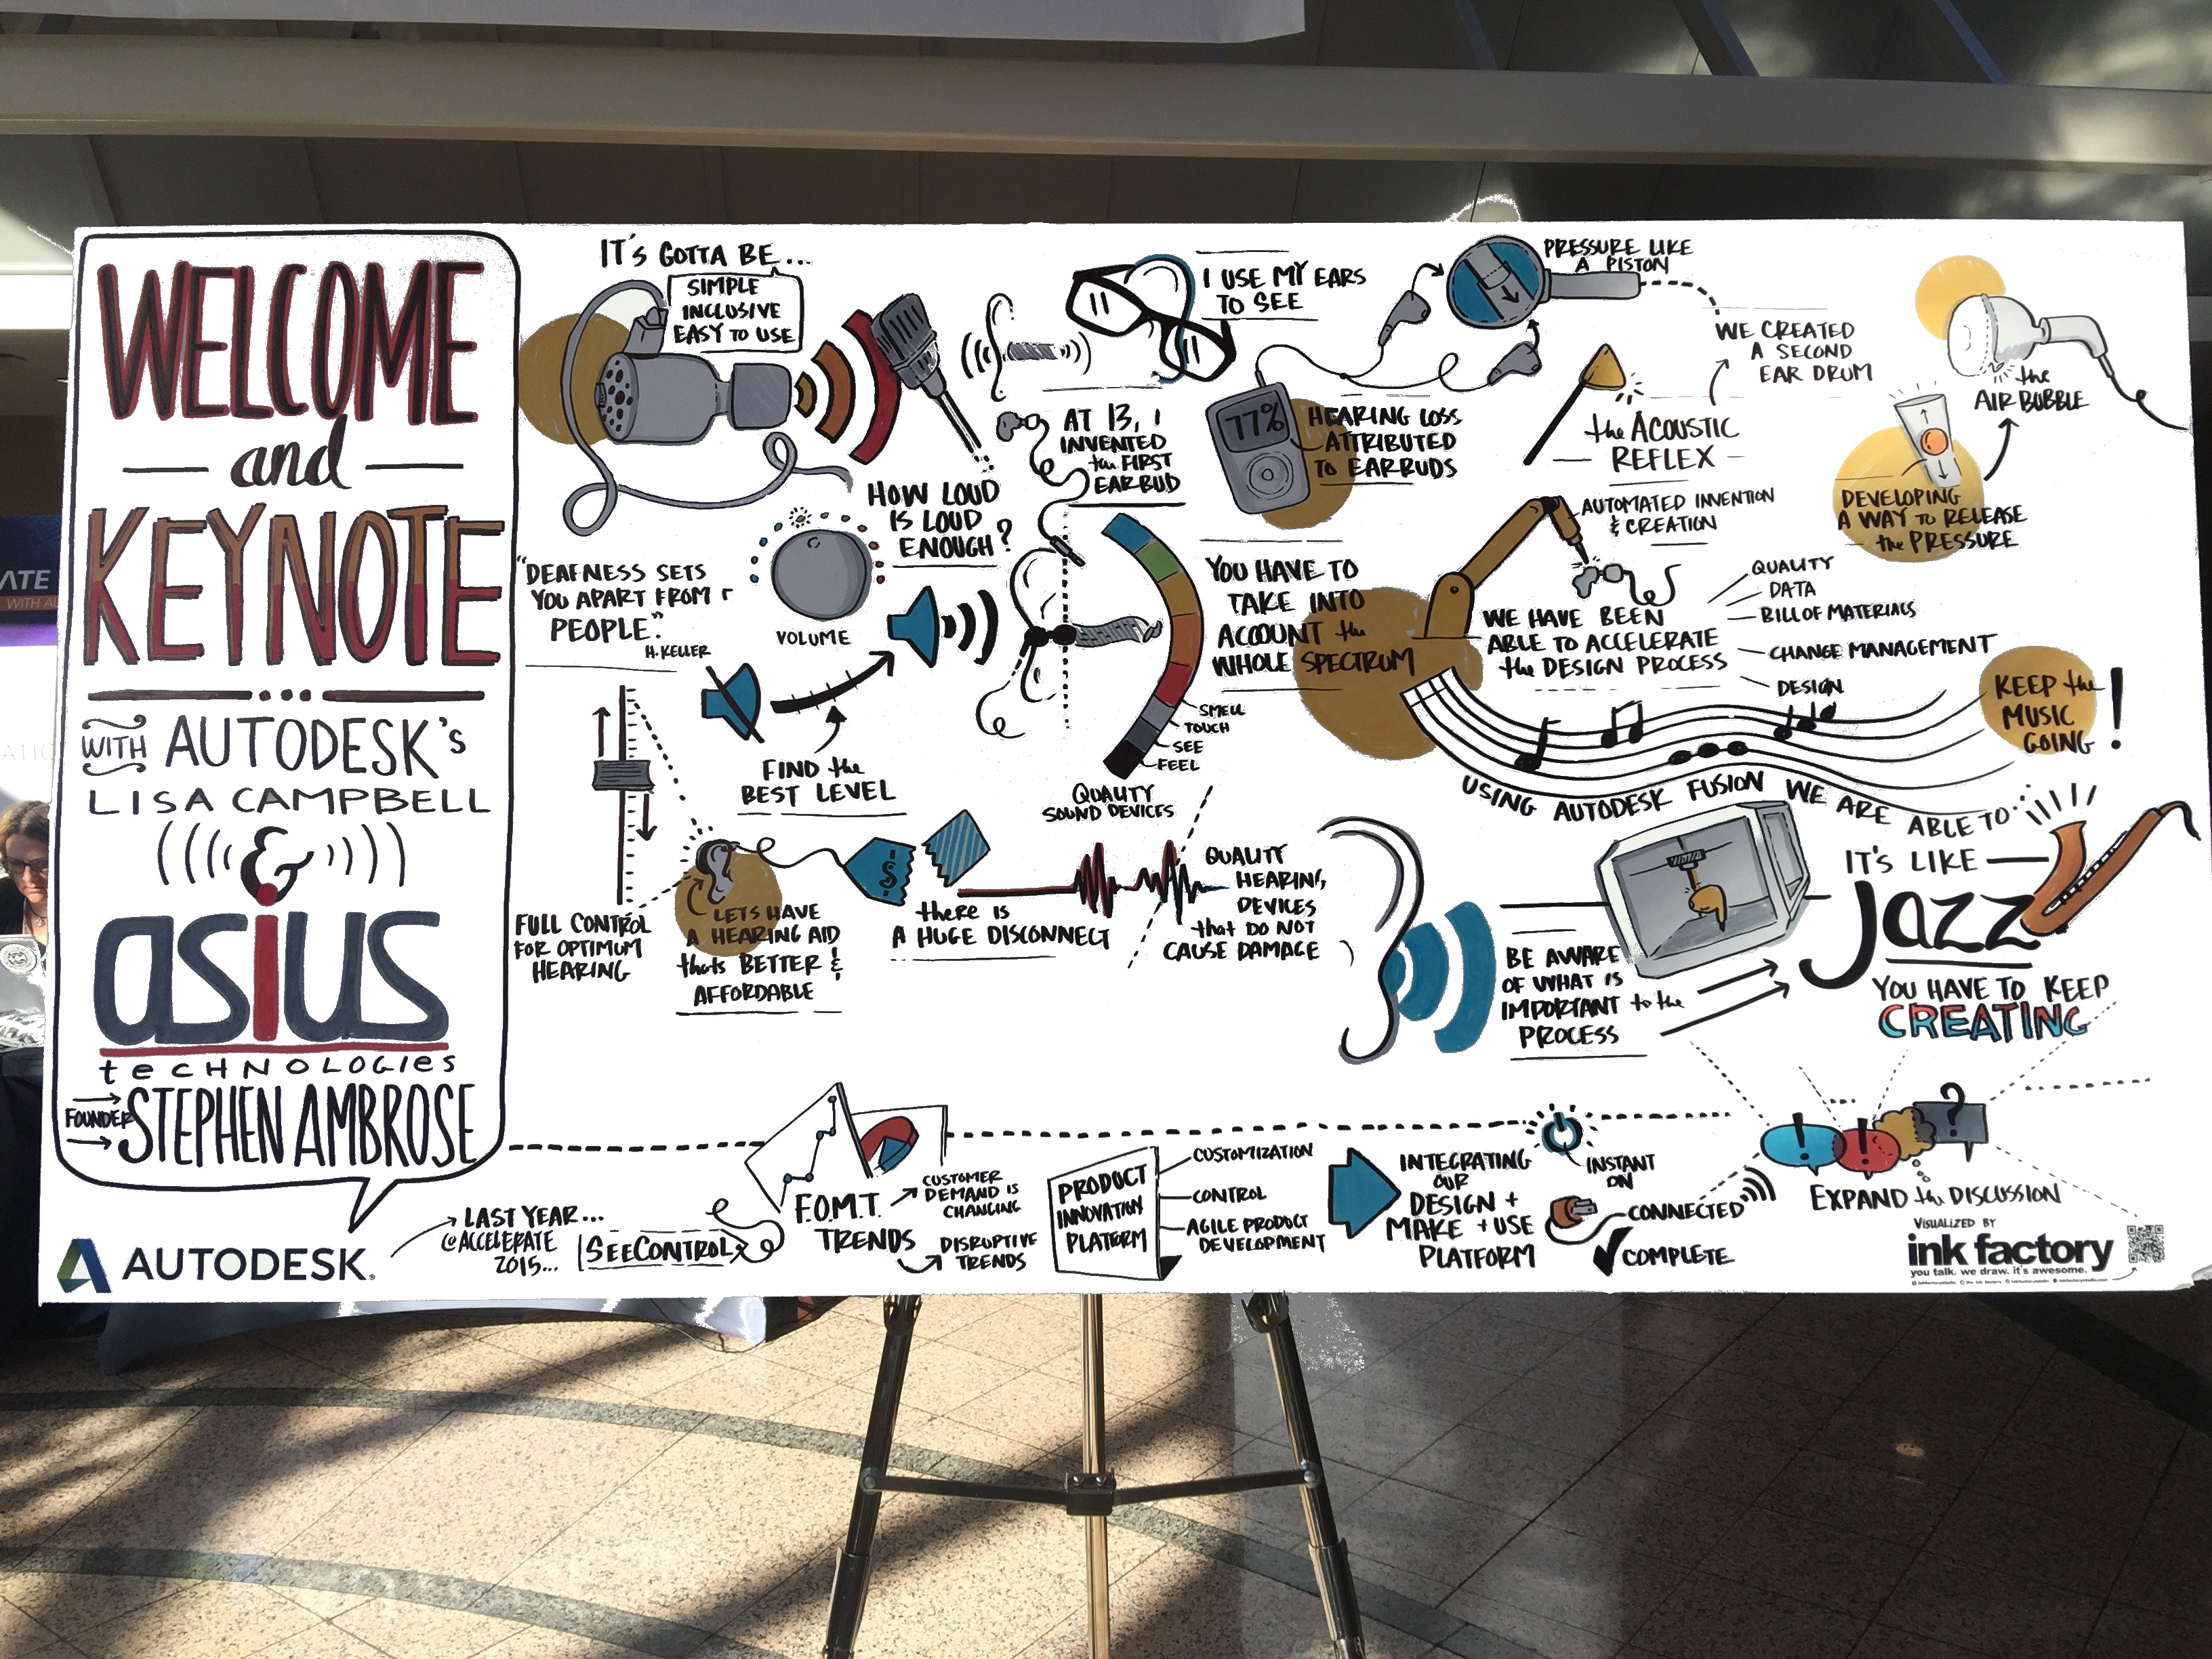 WELCOME
and
KEYNOTE
WITH AUTODESK's
LISA CAMPBELL
&
asius
technologies
FOUNDER STEPHEN AMBROSE
AUTODESK.
IT'S GOTTA BE...
SIMPLE
INCLUSIVE
EASY to USE
HOW LOUD
IS LOUD
ENOUGH?
"DEAFNESS SETS
YOU APART FROM
PEOPLE."
H. KELLER
VOLUME
FIND the
BEST LEVEL
FULL CONTROL
FOR OPTIMUM
HEARING
LETS HAVE
A HEARING AID
thats BETTER &
AFFORDABLE
$
there is
A HUGE DISCONNECT
I USE MY EARS
TO SEE
AT 13, I
INVENTED
the FIRST
EARBUD
77%
HEARING LOSS
ATTRIBUTED
TO EARBUDS
YOU HAVE TO
TAKE INTO
ACCOUNT the
WHOLE SPECTRUM
SMELL
TOUCH
SEE
FEEL
QUALITY
SOUND DEVICES
QUALITY
HEARING
DEVICES
that DO NOT
CAUSE DAMAGE
PRESSURE LIKE
A PISTON
WE CREATED
A SECOND
EAR DRUM
the ACOUSTIC
REFLEX
the
AIR BUBBLE
DEVELOPING
A WAY to RELEASE
the PRESSURE
AUTOMATED INVENTION
& CREATION
WE HAVE BEEN
ABLE TO ACCELERATE
the DESIGN PROCESS
QUALITY
DATA
BILL OF MATERIALS
CHANGE MANAGEMENT
DESIGN
KEEP the
MUSIC
GOING!
USING AUTODESK FUSION WE ARE ABLE TO...
IT'S LIKE
Jazz
YOU HAVE TO KEEP
CREATING
BE AWARE
OF WHAT IS
IMPORTANT to the
PROCESS
LAST YEAR...
@ACCELERATE
2015...
SEECONTROL
F.O.M.T.
TRENDS
CUSTOMER
DEMAND IS
CHANGING
DISRUPTIVE
TRENDS
PRODUCT
INNOVATION
PLATFORM
CUSTOMIZATION
CONTROL
AGILE PRODUCT
DEVELOPMENT
INTEGRATING
OUR
DESIGN +
MAKE + USE
PLATFORM
INSTANT
ON
CONNECTED
COMPLETE
! ! ?
EXPAND the DISCUSSION
VISUALIZED BY
ink factory
you talk. we draw. it's awesome.